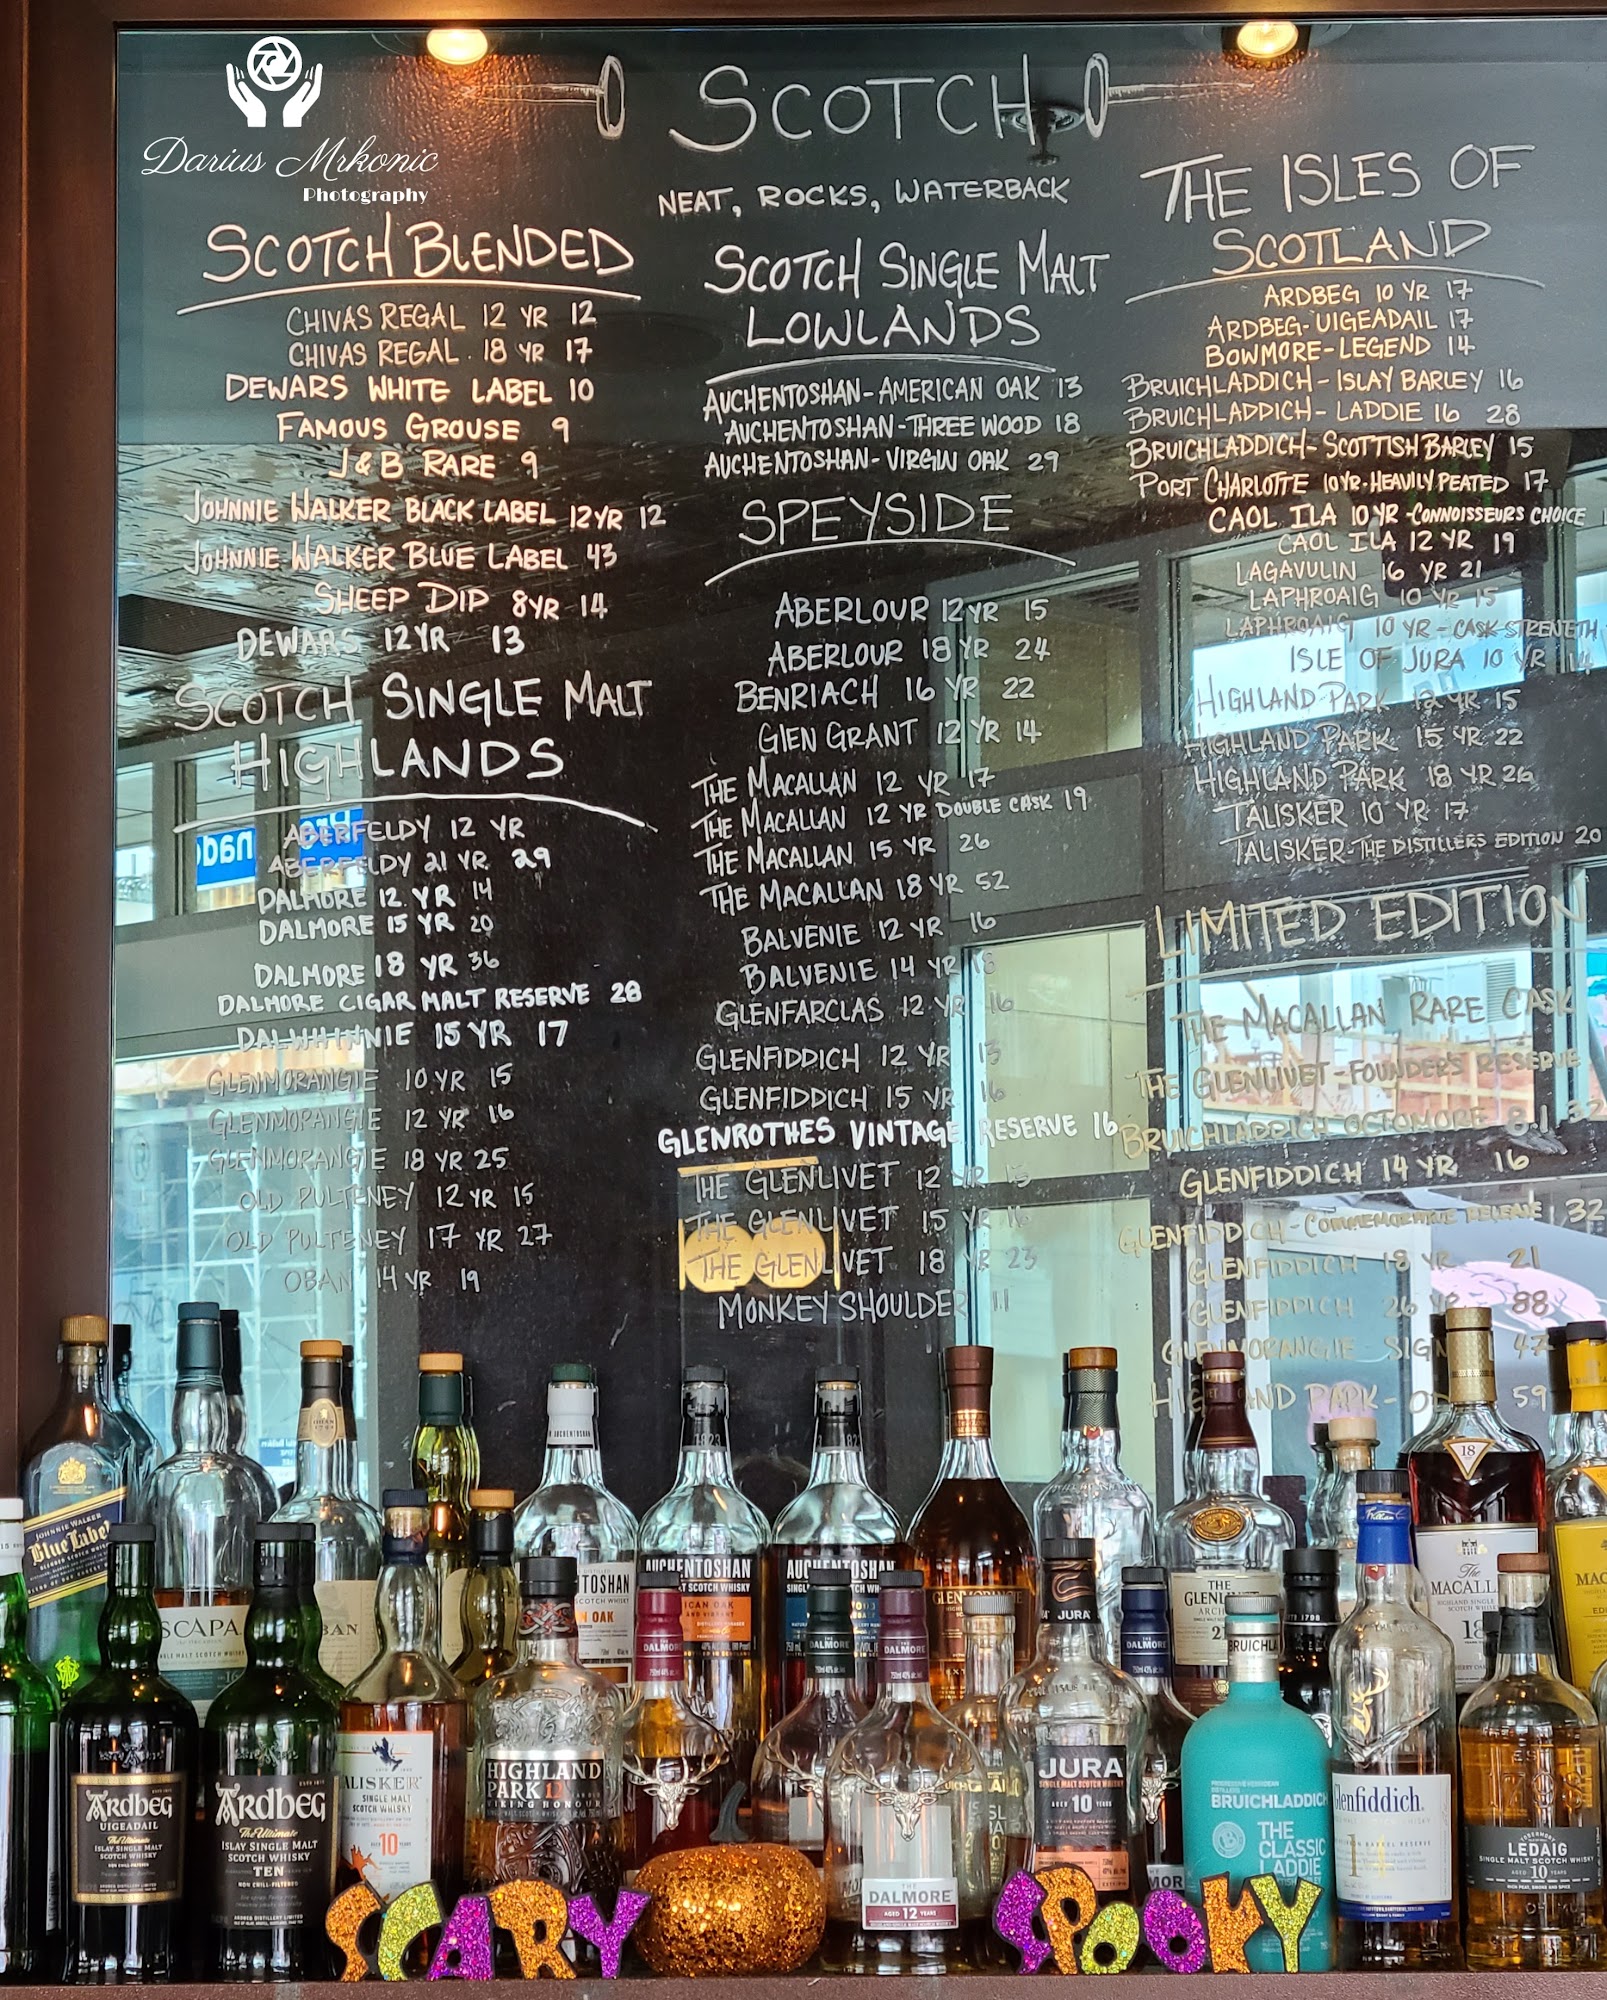 Darius Mrkonic
Photography
SCOTCH
NEAT, ROCKS, WATERBACK
SCOTCH BLENDED
CHIVAS REGAL 12 YR 12
CHIVAS REGAL. 18 YR 17
DEWARS WHITE LABEL 10
FAMOUS GROUSE 9
J & B RARE 9
JOHNNIE WALKER BLACK LABEL 12YR 12
JOHNNIE WALKER BLUE LABEL 43
SHEEP DIP 8YR 14
DEWARS 12YR 13
SCOTCH SINGLE MALT
HIGHLANDS
ABERFELDY 12 YR
ABERFELDY 21 YR. 29
DALMORE 12 YR 14
DALMORE 15 YR 20
DALMORE 18 YR 36
DALMORE CIGAR MALT RESERVE 28
DALWHINNIE 15 YR 17
GLENMORANGIE 10YR 15
GLENMORANGIE 12 YR 16
GLENMORANGIE 18 YR 25
OLD PULTENEY 12 YR 15
OLD PULTENEY 17 YR 27
OBAN 14 YR 19
SCOTCH SINGLE MALT
LOWLANDS
AUCHENTOSHAN-AMERICAN OAK 13
AUCHENTOSHAN-THREE WOOD 18
AUCHENTOSHAN-VIRGIN OAK 29
SPEYSIDE
ABERLOUR 12YR 15
ABERLOUR 18 YR 24
BENRIACH 16 YR 22
GLEN GRANT 12 YR 14
THE MACALLAN 12 YR 17
THE MACALLAN 12 YR DOUBLE CASK 19
THE MACALLAN 15 YR 26
THE MACALLAN 18 YR 52
BALVENIE 12 YR 16
BALVENIE 14 YR 18
GLENFARCLAS 12 YR 16
GLENFIDDICH 12 YR 13
GLENFIDDICH 15 YR 16
GLENROTHES VINTAGE RESERVE 16
THE GLENLIVET 12 YR 15
THE GLENLIVET 15 YR 16
THE GLENLIVET 18 YR 23
MONKEY SHOULDER 11
THE ISLES OF
SCOTLAND
ARDBEG 10 YR 17
ARDBEG-UIGEADAIL 17
BOWMORE-LEGEND 14
BRUICHLADDICH-ISLAY BARLEY 16
BRUICHLADDICH-LADDIE 16 28
BRUICHLADDICH-SCOTTISH BARLEY 15
PORT CHARLOTTE 10YR-HEAVILY PEATED 17
CAOL ILA 10 YR-CONNOISSEURS CHOICE
CAOL ILA 12 YR 19
LAGAVULIN 16 YR 21
LAPHROAIG 10 YR 15
LAPHROAIG 10 YR-CASK STRENETH
ISLE OF JURA 10 YR 14
HIGHLAND PARK 12 YR 15
HIGHLAND PARK 15 YR 22
HIGHLAND PARK 18 YR 26
TALISKER 10 YR 17
TALISKER-THE DISTILLERS EDITION 20
LIMITED EDITION
THE MACALLAN RARE CASK
THE GLENLIVET-FOUNDER'S RESERVE
BRUICHLADDICH OCTOMORE 8.1 32
GLENFIDDICH 14 YR 16
GLENFIDDICH-COMMEMORATIVE RELEASE 32
GLENFIDDICH 18 YR 21
GLENFIDDICH 26 YR 88
GLENMORANGIE SIGN 47
HIGHLAND PARK- 59
JOHNNIE WALKER
Blue Label
SCAPA
BAN
AUCHENTOSHAN
TOSHAN
OAK
AUCHENTOSHAN
AUCHENTOSHAN
GLENMORANGIE
THE
GLENLIV
21
18
The
MACALL
18
ARDBEG
UIGEADAIL
The Ultimate
ISLAY SINGLE MALT
SCOTCH WHISKY
ARDBEG
The Ultimate
ISLAY SINGLE MALT
SCOTCH WHISKY
TEN
NON CHILL-FILTERED
ALISKER
SINGLE MALT
SCOTCH WHISKY
10
HIGHLAND
PARK 12
VIKING HONOUR
THE
DALMORE
THE
DALMORE
THE
DALMORE
THE
DALMORE
AGED 12 YEARS
JURA
JURA
SINGLE MALT SCOTCH WHISKY
AGED 10 YEARS
BRUICHL
BRUICHLADDICH
THE
CLASSIC
LADDIE
Glenfiddich
LEDAIG
SINGLE MALT SCOTCH WHISKY
AGED 10 YEARS
SCARY
SPOOKY